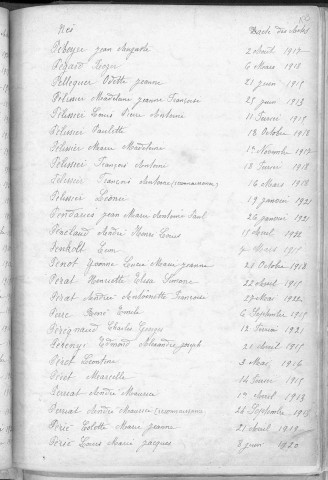 Noi Date des Actes
Peboyer Jean Auguste 2 Août 1917
Pégard Roger 6 Mars 1918
Pellequer Odette Jeanne 21 Juin 1915
Pelissier Madeleine Jeanne Françoise 25 Juin 1913
Pelissier Louis Antoine 11 Février 1915
Pelissier Paulette 13 Octobre 1918
Pelissier Marie Madeleine 1er Novembre 1917
Pelissier François Antoine 10 Février 1918
Pelissier François Antoine (reconnaissance) 16 Mars 1918
Pelissier Léonce 19 Janvier 1921
Pendaries Jean Marie Antoine Paul 26 Janvier 1921
André Henri Louis 15 Avril 1922
Mars 1915
Penot Yvonne Lucie Marie Jeanne 28 Octobre 1918
Perat Henriette Elisa Simone 22 Avril 1915
Perat Andrée Antoinette Françoise 27 Mai 1922
Pere René Emile 6 Septembre 1915
Charles Georges 12 Février 1921
Edmond Alexandre Joseph 20 Avril 1915
Péret Léontine 3 Mai 1916
Péret Marcelle 14 Février 1915
Perreat André Maurice 1er Avril 1913
Perreat André Maurice (reconnaissance) 26 Septembre 1918
Périé Colette Marie Jeanne 21 Avril 1919
Périé Louis Marie Jacques 8 Juin 1920